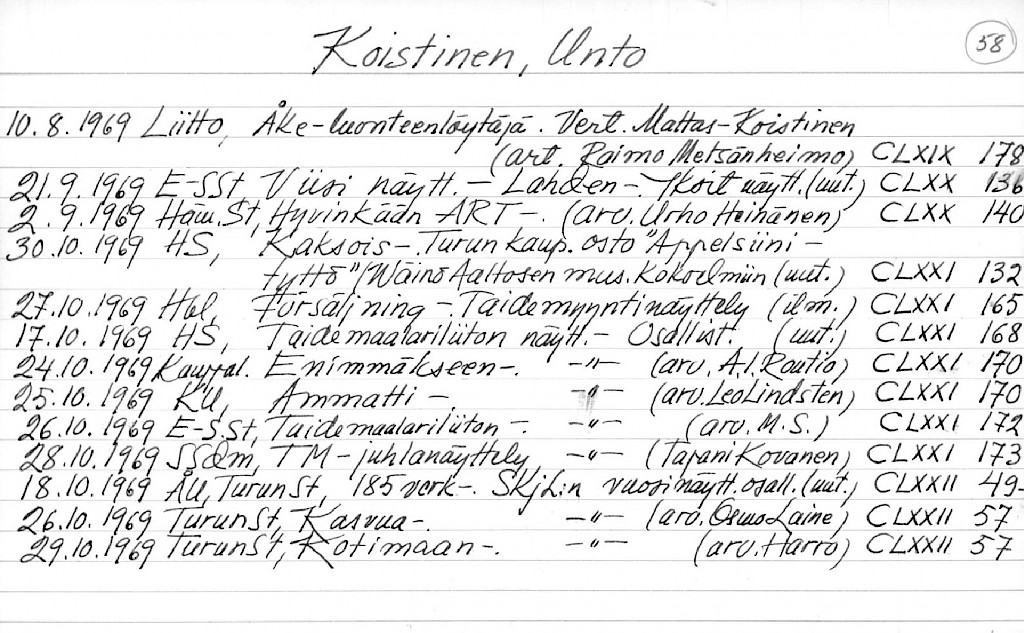 Koistinen, Unto 58
10.8.1969 Liitto, Åke-luonteenlöytäjä. Vert. Mattas-Koistinen
(art. Raimo Metsänheimo) CLXIX 178
21.9.1969 E-SSt, Viisi näytt. – Lahden –. näytt. (uut.) CLXX 136
2.9.1969 Häm.St, Hyvinkään ART –. (arv. Urho Heinänen) CLXX 140
30.10.1969 HS, Kaksois –. Turun kaup. osto "Appelsiini-
tyttö"/Wäinö Aaltosen mus. kokoelmiin (uut.) CLXXI 132
27.10.1969 Hbl, Försäljning – Taidemyyntinäyttely (ilm.) CLXXI 165
17.10.1969 HS, Taidemaalariliiton näytt. – Osallist. (uut.) CLXXI 168
24.10.1969 Kauppal. Enimmäkseen –. –"– (arv. A.I. Routio) CLXXI 170
25.10.1969 KU, Ammatti –. –"– (arv. Leo Lindsten) CLXXI 170
26.10.1969 E-S.St, Taidemaalariliiton –. –"– (arv. M.S.) CLXXI 172
28.10.1969 SSdm, TM-juhlanäyttely –"– (Tapani Kovanen) CLXXI 173
18.10.1969 ÅU, TurunSt, 185 verk –. SKjL:n vuosinäytt. osall. (uut.) CLXXII 49-
26.10.1969 TurunSt, Kasvua –. –"– (arv. Osmo Laine) CLXXII 57
29.10.1969 TurunSt, Kotimaan –. –"– (arv. Harro) CLXXII 57